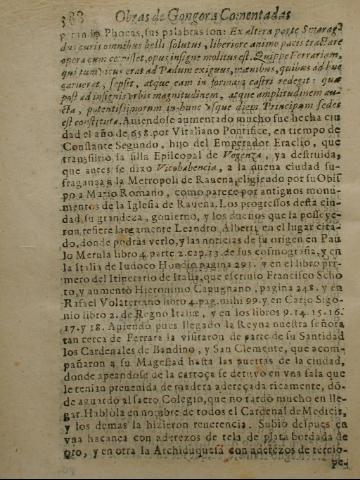 388 Obras de Gongora Comentadas
Phocas, sus palabras son: Ex altera parte Smarag-
dus curis omnibus belli solutus, liberiore animo paces tractare
opera cum cœpisset, opus insigne molitus est. Quippe Ferrariam,
qui tum vicus erat ad Padum exiguus, mœnibus, quibus ad huc
caruerat, sepsit, atque eam in formam castri redegit: quæ
post ad insignis vrbis magnitudinem, atque amplitudinem au-
cta, potentissimorum in hunc vsque diem Principum sedes
est constituta. Auiendose aumentado mucho fue hecha ciu
dad el año de 658. por Vitaliano Pontifice, en tiempo de
Constante Segundo, hijo del Emperador Eraclio, que
transfirio la silla Episcopal de Vogenza, ya destruida,
que antes se dixo Vicohabencia, a la nueua ciudad su-
fraganea a la Metropoli de Rauena, eligiendo por su Obis
po a Mario Romano, como parece por antiguos monu-
mentos de la Iglesia de Rauena. Los progressos desta ciu
dad, su grandeza, gouierno, y los dueños que la posseye-
ron, refiere largamente Leandro Alberti en el lugar cita-
do, donde podràs verlo, y las noticias de su origen en Pau
lo Merula libro 4. parte 2. cap. 13. de sus cosmografia, y en
la Italia de Iudoco Hondio pagina 291. y en el libro pri-
mero del Itinerario de Italia, que escriuio Francisco Scho
to, y aumentò Hieronimo Capugnano, pagina 248. y en
Rafael Volaterrano libro 4. pag. mihi 99. y en Carlo Sigo-
nio libro 2. de Regno Italiæ, y en los libros 9. 14. 15. 16.
17. y 18. Auiendo pues llegado la Reyna nuestra señora
tan cerca de Ferrara la visitaron de parte de su Santidad
los Cardenales de Bandino, y San Clemente, que acom-
pañaron a su Magestad hasta las puertas de la ciudad,
donde apeandose de la carroça se detuvo en vna sala que
le tenian preuenida de madera adereçada ricamente, dõ-
de aguardò al sacro Colegio, que no tardò mucho en lle-
gar. Hablòla en nombre de todos el Cardenal de Medicis,
y los demas la hizieron reuerencia. Subio despues en
vna hacanea con aderezos de tela de plata bordada de
oro, y en otra la Archiduquesa con aderezos de tercio-
pe-